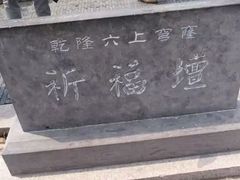 乾隆六上穹窿
祈福壇